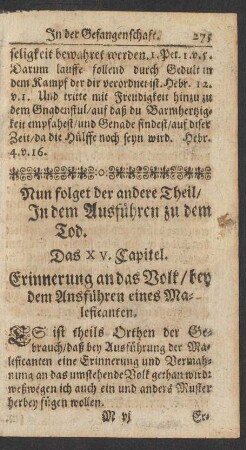 In der Gefangenschaft. 275
seligkeit bewahret werden. 1. Pet. 1. v. 5.
Darum lauffe follend durch Gedult in
dem Kampf der dir verordnet ist. Hebr. 12.
v. 1. Und tritte mit Freudigkeit hinzu zu
dem Gnadenstul / auf daß du Barmhertzig
keit empfahest / und Genade findest / auf diser
Zeit / da die Hülffe noch seyn wird. Hebr.
4. v. 16.
Nun folget der andere Theil /
In dem Ausführen zu dem
Tod.
Das X V. Capitel.
Erinnerung an das Volk / bey
dem Ansführen eines Ma-
leficanten.
ES ist theils Orthen der Ge-
brauch / daß bey Ausführung der Ma-
leficanten eine Erinnerung und Vermah-
nung an das umstehende Volk gethan wird:
weßwegen ich auch ein und anders Muster
herbey fügen wollen.
M vj Er-